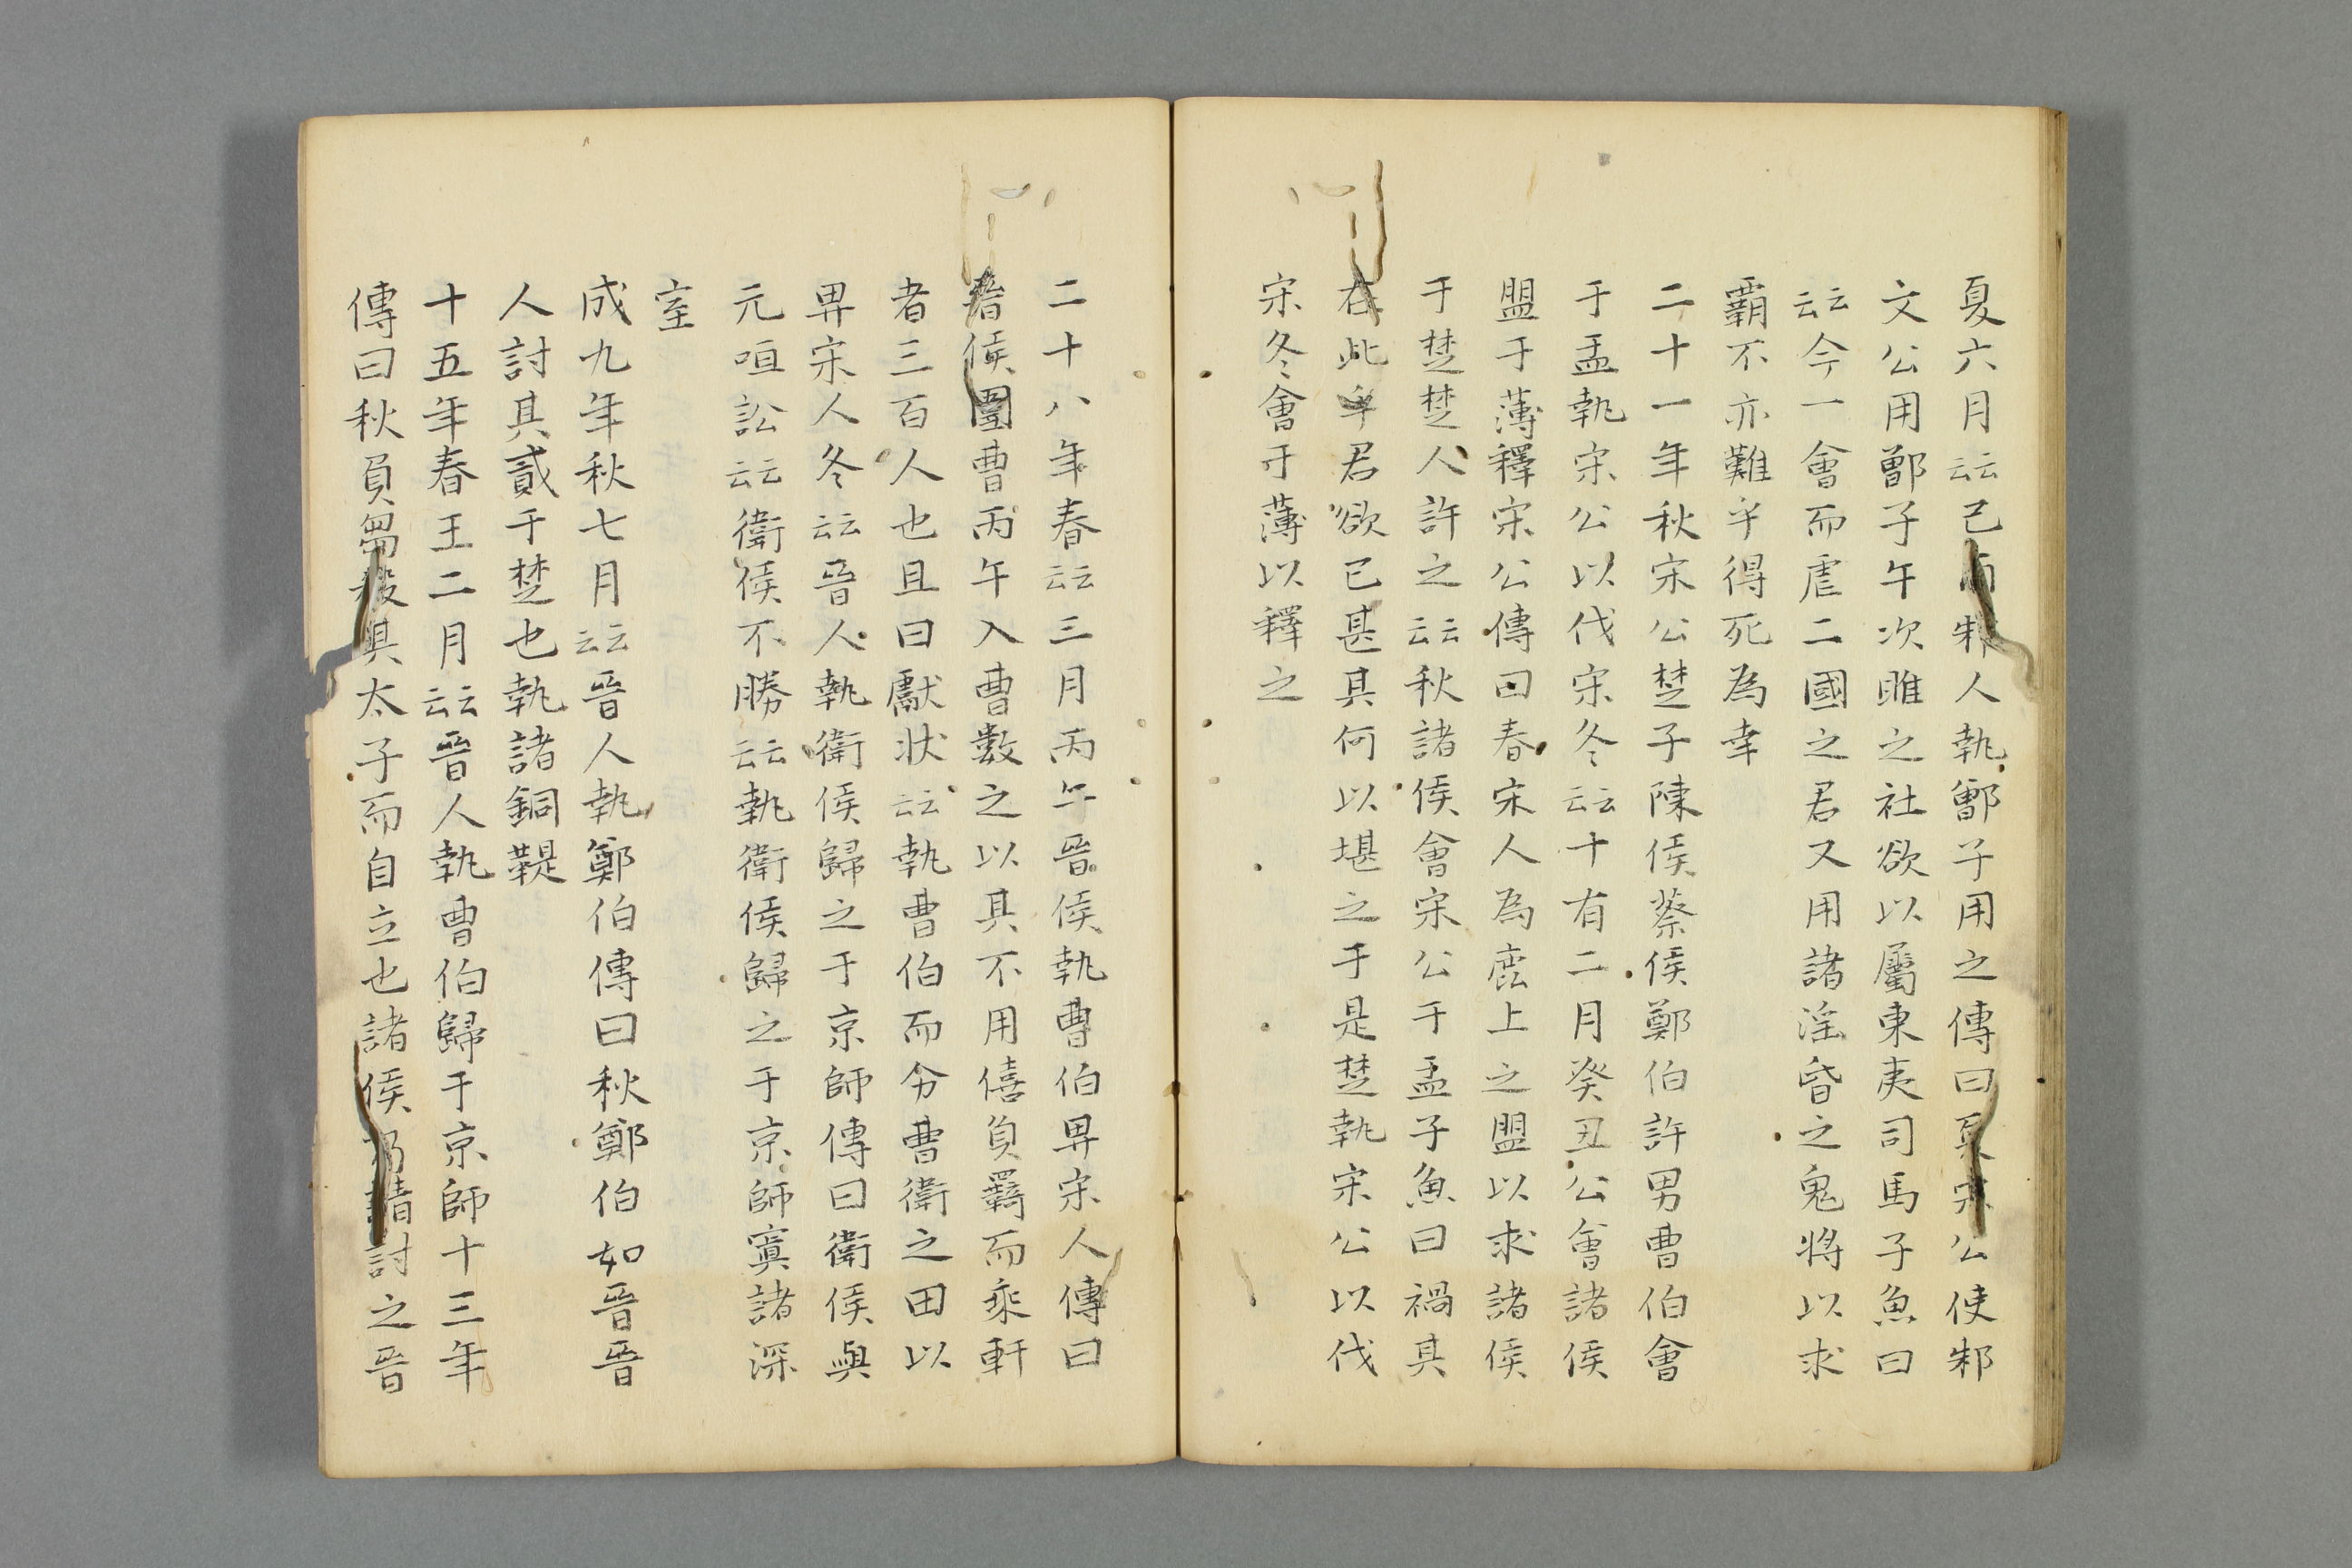 夏六月云云己酉邾人執鄫子用之傳曰夏宋公使邾
文公用鄫子午次睢之社欲以屬東夷司馬子魚曰
云云今一會而虐二國之君又用諸淫昏之鬼將以求
霸不亦難乎得死為幸
二十一年秋宋公楚子陳侯蔡侯鄭伯許男曹伯會
于盂執宋公以伐宋冬云云十有二月癸丑公會諸侯
盟于薄釋宋公傳曰春宋人為鹿上之盟以求諸侯
于楚楚人許之云云秋諸侯會宋公于盂子魚曰禍其
在此乎君欲已甚其何以堪之于是楚執宋公以伐
宋冬會于薄以釋之
二十八年春云云三月丙午晉侯執曹伯畀宋人傳曰
晉侯圍曹丙午入曹數之以其不用僖負羈而乘軒
者三百人也且曰獻狀云云執曹伯而分曹衛之田以
畀宋人冬云云晉人執衛侯歸之于京師傳曰衛侯與
元咺訟云云衛侯不勝云云執衛侯歸之于京師寘諸深
室
成九年秋七月云云晉人執鄭伯傳曰秋鄭伯如晉晉
人討其貳于楚也執諸銅鞮
十五年春王二月云云晉人執曹伯歸于京師十三年
傳曰秋負芻殺其太子而自立也諸侯乃請討之晉